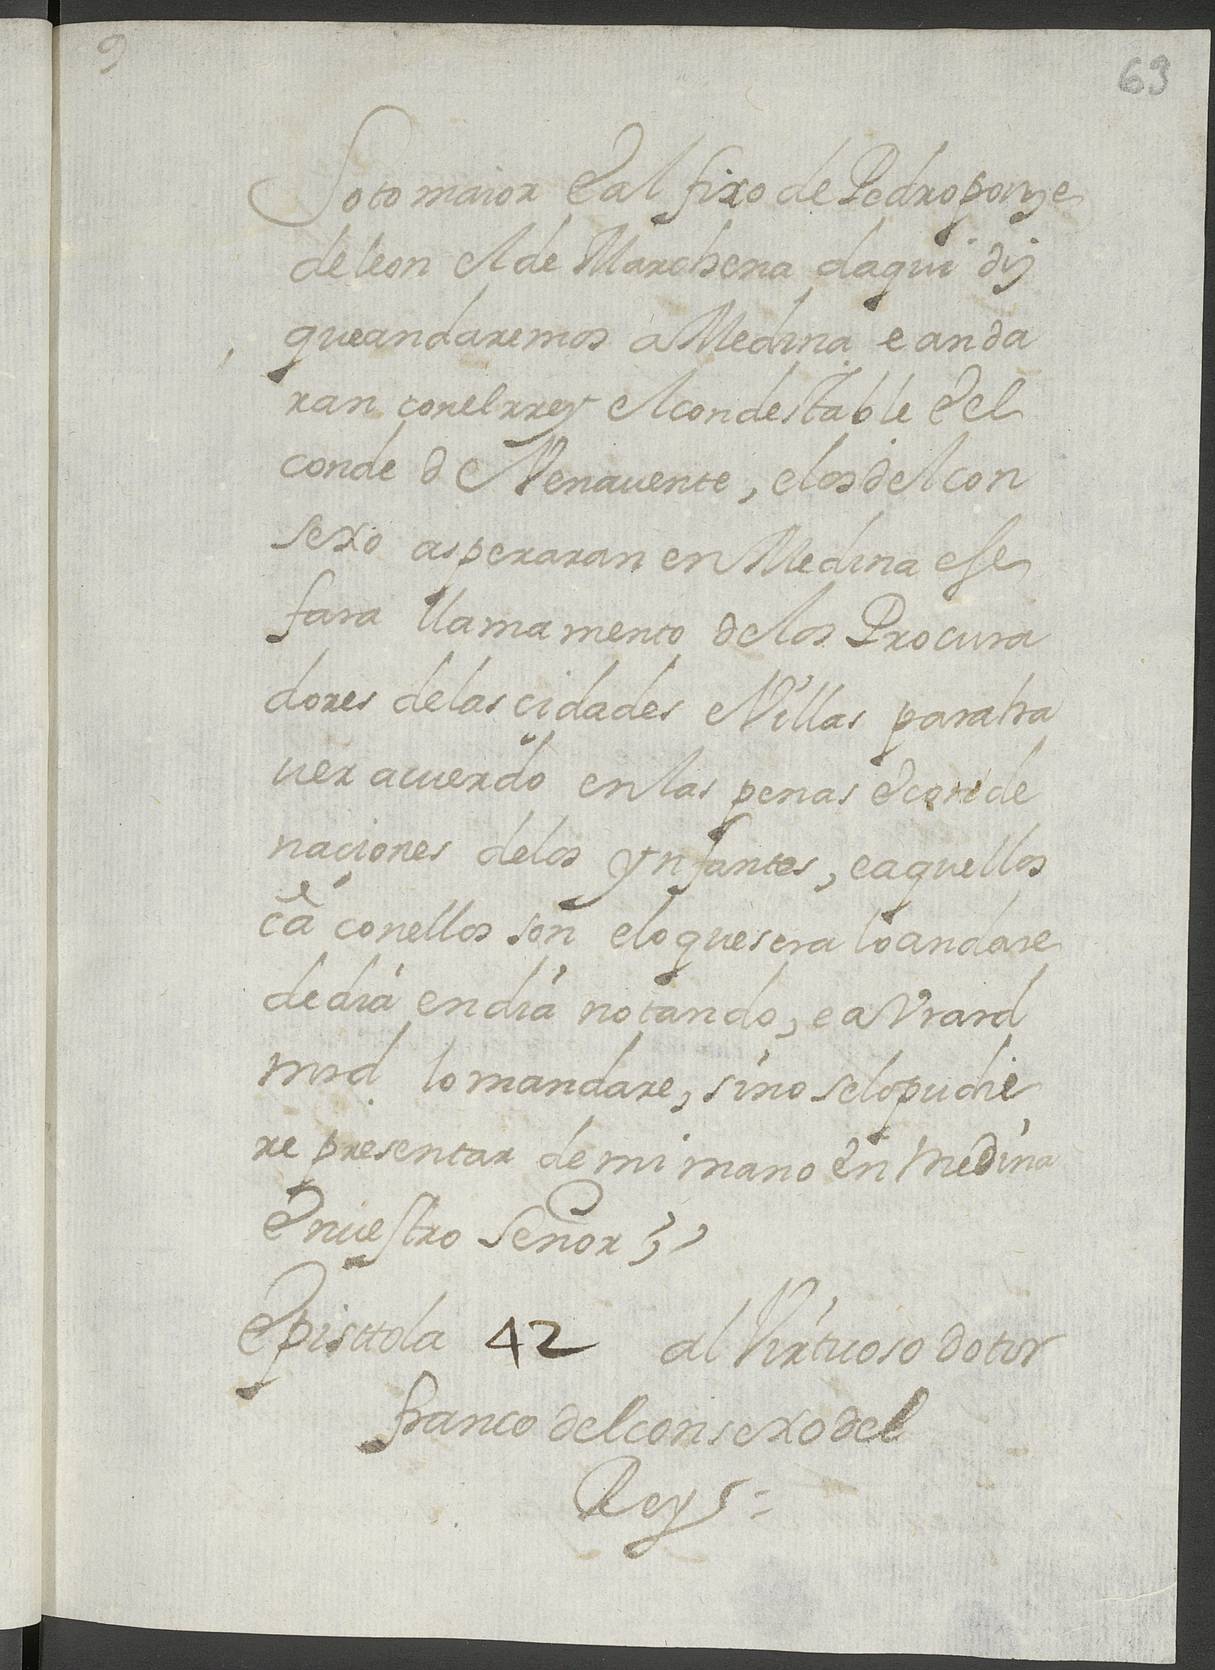 9
69
Sotomaior e al fixo de Pedro ponze
de leon el de Marchena daqui diz
que andaremos a Medina e anda
ran con el rrey el condestable e el
conde d Venauente, e los del con
sexo asperaran en Medina e se
fara llamamento de los Procura
dores de las cidades e Villas para ha
uer acuerdo en las penas e conde
naçiones de los ynfantes, e aquellos
ca con ellos son e lo que sera lo andare
de dia en dia notando, e a Vra rd
mrd lo mandare, si no se lo pudie
re presentar de mi mano en Medina
e nuestro Señor
Episttola 42 al Virtuoso dotor
franco del consexo del
Rey